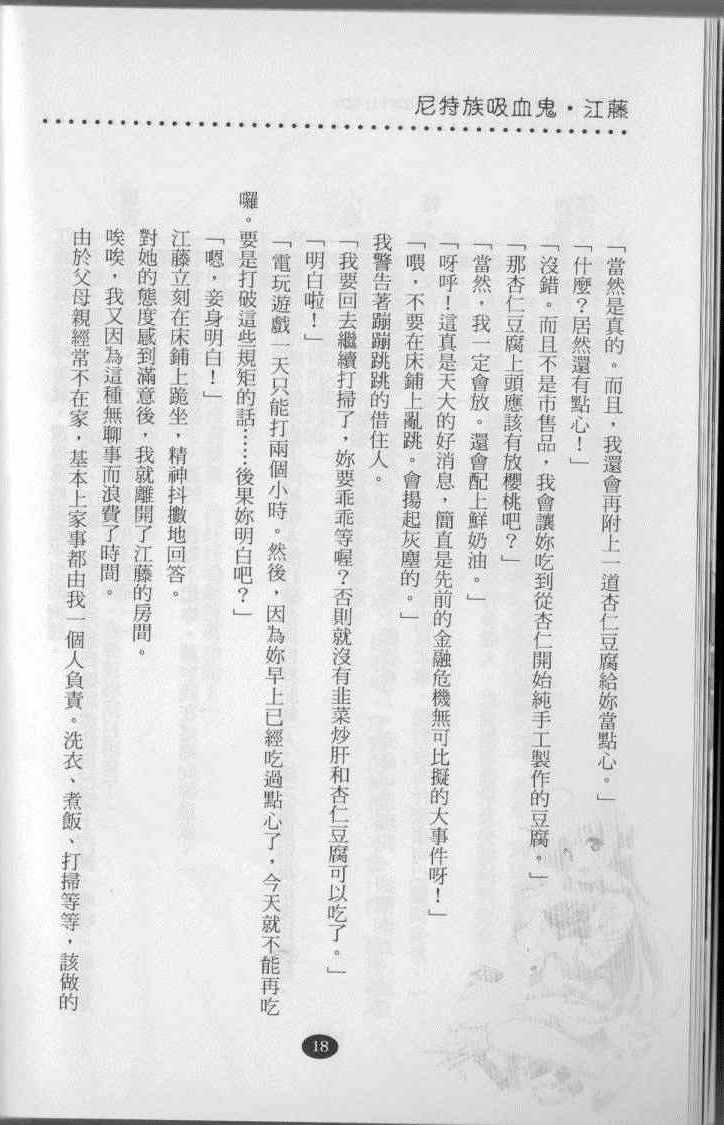 尼特族吸血鬼・江藤
「當然是真的。而且，我還會再附上一道杏仁豆腐給妳當點心。」
「什麼？居然還有點心！」
「沒錯。而且不是市售品，我會讓妳吃到從杏仁開始純手工製作的豆腐。」
「那杏仁豆腐上頭應該有放櫻桃吧？」
「當然，我一定會放。還會配上鮮奶油。」
「呀呼！這真是天大的好消息，簡直是先前的金融危機無可比擬的大事件呀！」
「喂，不要在床鋪上亂跳。會揚起灰塵的。」
我警告著蹦蹦跳跳的借住人。
「我要回去繼續打掃了，妳要乖乖等喔？否則就沒有韭菜炒肝和杏仁豆腐可以吃了。」
「明白啦！」
「電玩遊戲一天只能打兩個小時。然後，因為妳早上已經吃過點心了，今天就不能再吃
囉。要是打破這些規矩的話……後果妳明白吧？」
「嗯，妾身明白！」
江藤立刻在床鋪上跪坐，精神抖擻地回答。
對她的態度感到滿意後，我就離開了江藤的房間。
唉唉，我又因為這種無聊事而浪費了時間。
由於父母親經常不在家，基本上家事都由我一個人負責。洗衣、煮飯、打掃等等，該做的
18